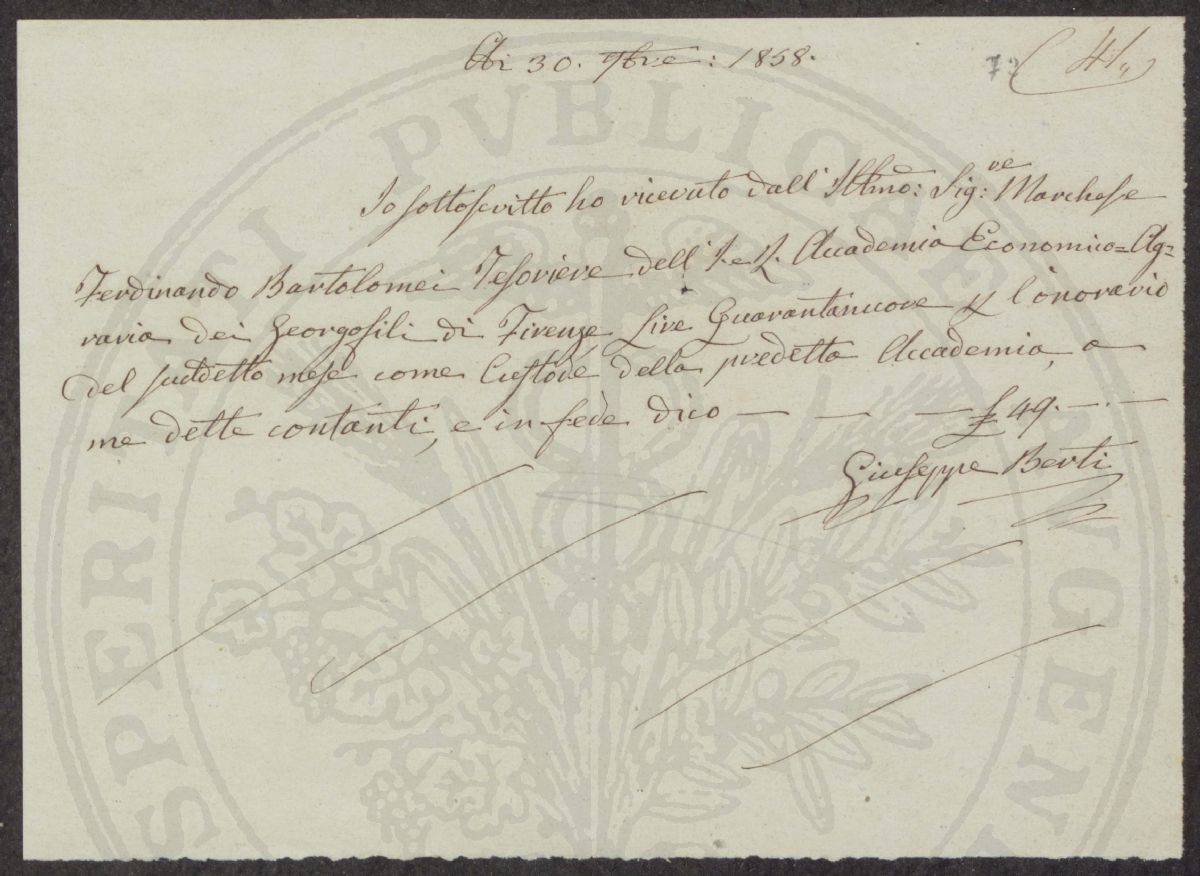 Adi 30. 9bre: 1858.
7. ( 41,, )
Io sottoscritto ho ricevuto dall' Illmo: Sig:re Marchese
Ferdinando Bartolomei Tesoriere dell' I. e R. Accademia Economico=Ag=
raria dei Georgofili di Firenze Lire Quarantanuove p l'onorario
del suddetto mese come Custode della predetta Accademia, a
me dette contanti, e in fede dico — — — £ 49. — . —
Giuseppe Berti
PROSPERITATI PUBLICAE AUGENDAE